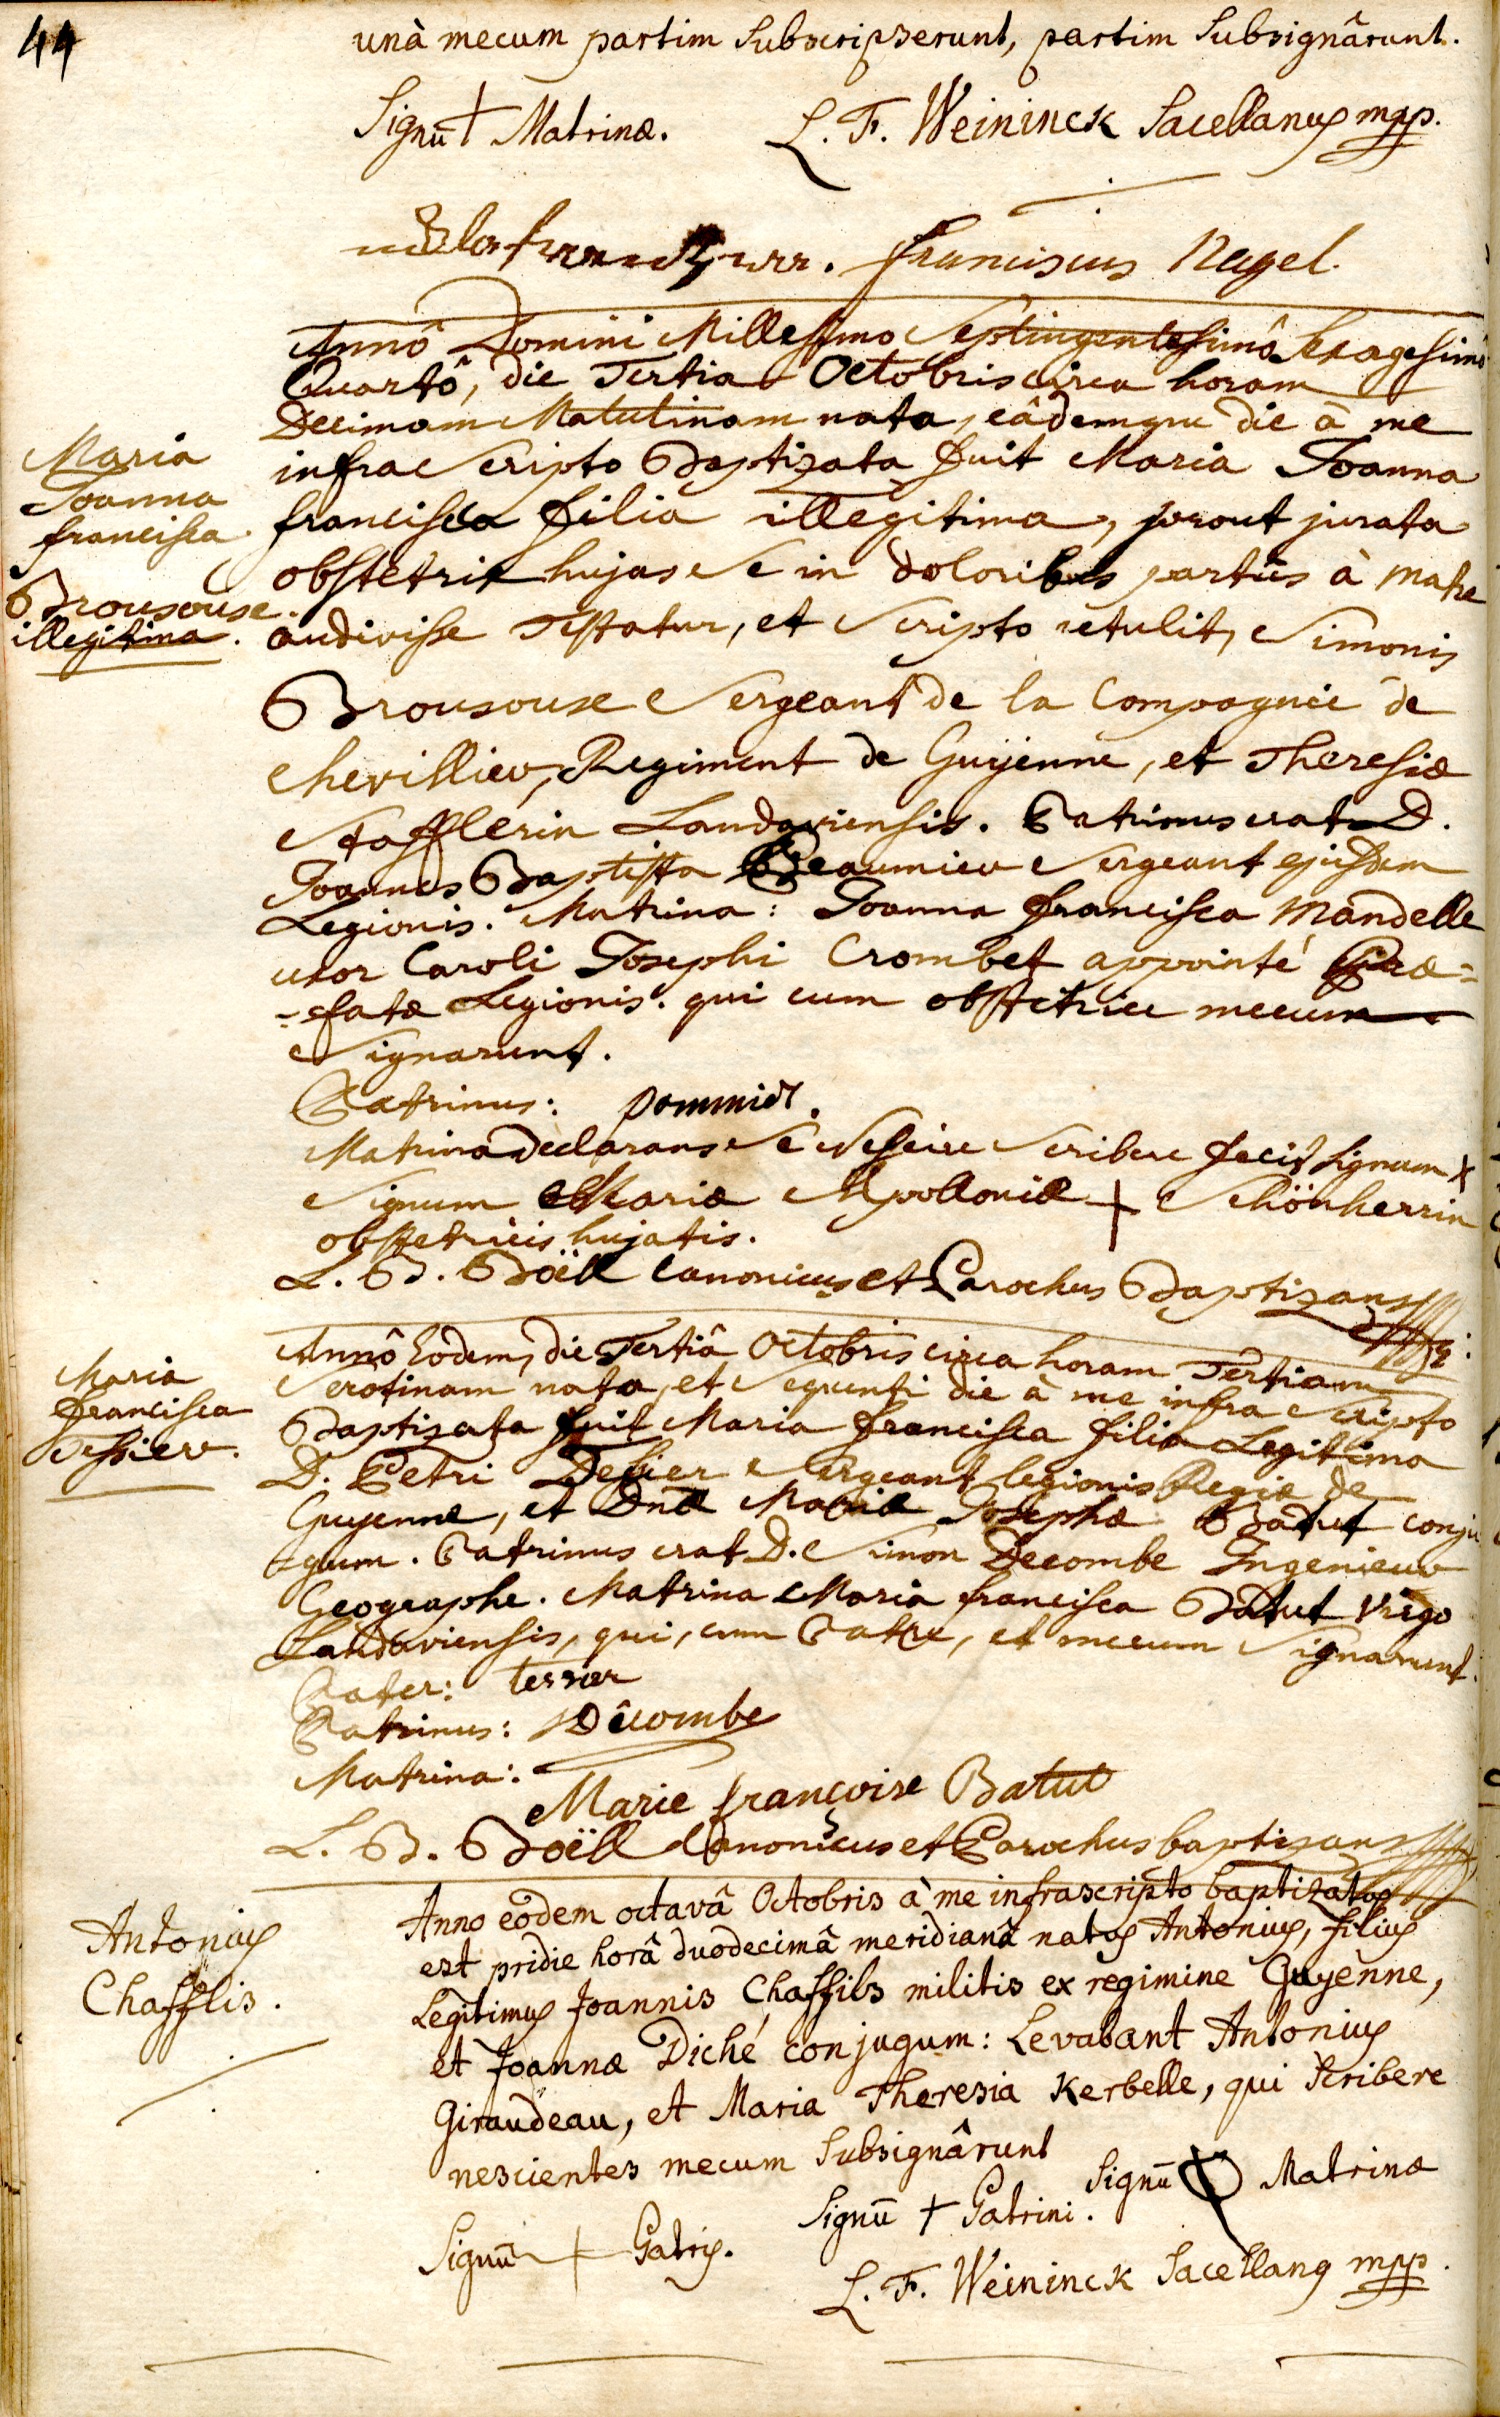 44
unà mecum partim Subscripserunt, partim Subsignârunt.
Signū † Matrinæ. L. F. Weininck Sacellanus mpp.
Franciscus Nagel.
Annô Domini Millesimo Septingentesimô Sexagesimô
Quartô, die Tertia Octobris circa horam
Decimam Matutinam nata, eâdemque die à me
infra Scripto Baptizata fuit Maria Joanna
Francisca filia illegitima, prout jurata
obstetrix hujas Se in doloribus partûs à matre
audivisse Testatur, et Scripto retulit, Simonis
Brousouse Sergeant de la Compagnie de
Chevilliev, Regiment de Guÿenne, et Theresiæ
Stafflerin Landaviensis. Patrinus erat D.
Joannes Baptista Beaumieu Sergeant ejusdem
Legionis. Matrina: Joanna Francisca Mandelle
uxor Caroli Josephi Crombet appointé Præ=
=fatæ Legionis. qui cum obstetrice mecum
Signarunt.
Maria
Joanna
francisca
Brousouse.
illegitima.
Patrinus: pommier.
Matrina declarans Se Nescire Scribere fecit Signum x
Signum Mariæ Apolloniæ + Schönherrin
obstetricis hujatis.
L. B. Boëll Canonicus et Parochus Baptizans
Annô Eodem, die Tertiâ Octobris circa horam Tertiam
Serotinam nata, et Sequenti die à me infra Scripto
Baptizata fuit Maria Francisca filia Legitima
D. Petri Tessier Sergeant legionis Regiæ de
Guyenne, et Dnæ Mariæ Josephæ Batut conju
gum. Patrinus erat D. Simon Decombe Ingenieur
Geographe. Matrina Maria francisca Batut Virgo
Landaviensis, qui, cum Patre, et mecum Signarunt.
Maria
Francisca
Tessier.
Pater: tessier
Patrinus: Décombe
Matrina:
Marie françoise Batut
L. B. Boëll Canonicus et Parochus baptizans
Anno eôdem octavâ Octobris à me infrascripto baptizatus
est pridie horâ duodecimâ meridianâ natus Antonius, filius
Legitimus Joannis Chaffils militis ex regimine Guyènne,
et Joannæ Diché conjugum: Levabant Antonius
Giraudeau, et Maria Theresia Kerbelle, qui Scribere
nescientes mecum Subsignârunt
Antonius
Chafflis.
Signū + Patris. Signū + Patrini. Signū Matrinæ
L. F. Weininck Sacellanus mpp.